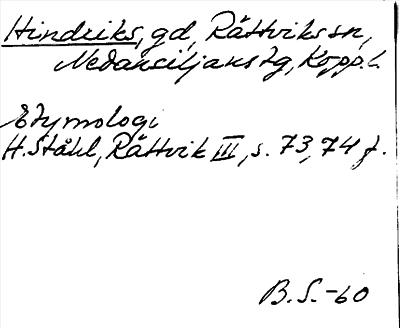 Hindriks, gd, Rättviks sn,
Nedansiljans tg, Kopp. l.
Etymologi
H. Ståhl, Rättvik III, s. 73, 74 f.
B. S. -60